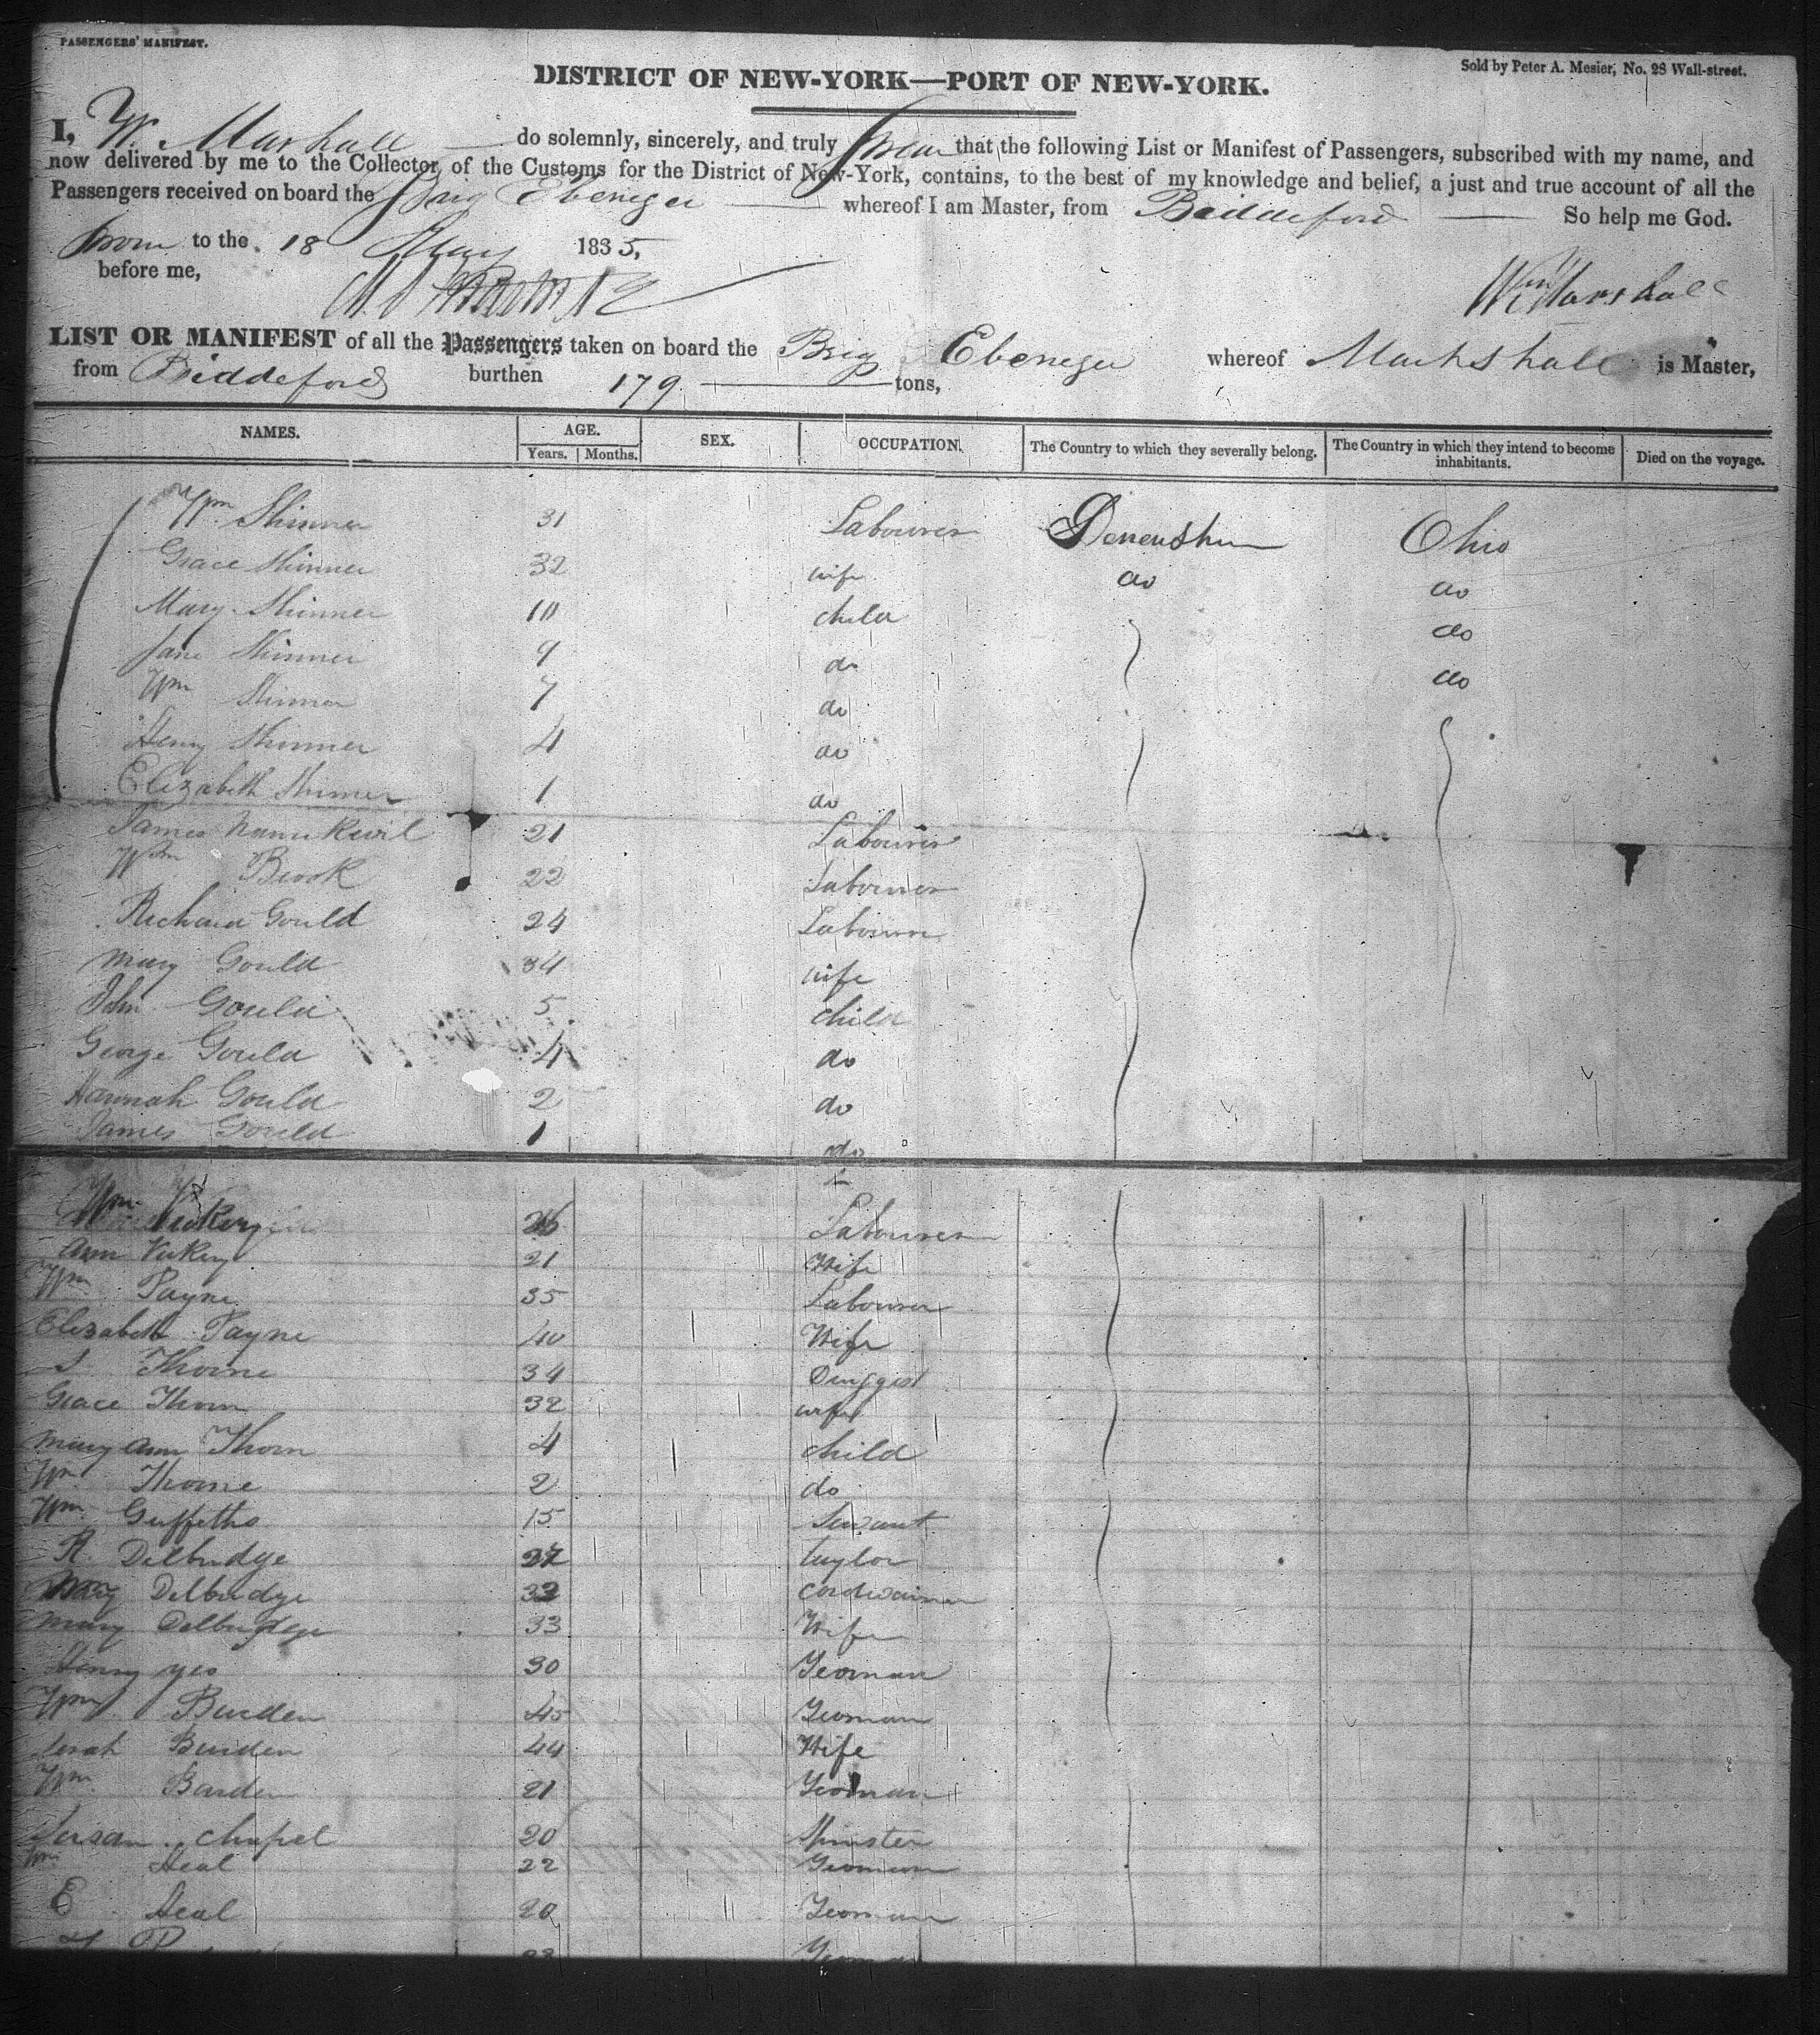 PASSENGERS' MANIFEST.
Sold by Peter A. Mesier, No. 28 Wall-street.
DISTRICT OF NEW-YORK—PORT OF NEW-YORK.
I, W. Marshall do solemnly, sincerely, and truly swear that the following List or Manifest of Passengers, subscribed with my name, and
now delivered by me to the Collector of the Customs for the District of New-York, contains, to the best of my knowledge and belief, a just and true account of all the
Passengers received on board the Brig Ebenezer whereof I am Master, from Biddeford So help me God.
Sworn to the 18 May 1835,
before me,
Wm Marshall
LIST OR MANIFEST of all the Passengers taken on board the Brig Ebenezer whereof Marhshall is Master,
from Biddeford burthen 179 tons,
NAMES. AGE. SEX. OCCUPATION. The Country to which they severally belong. The Country in which they intend to become inhabitants. Died on the voyage.
Years. Months.
Wm Skinner 31 Labourer Ohio
Grace Skinner 32 wife do do
Mary Skinner 10 child do
Jane Skinner 9 do do
Wm Skinner 7 do
Henry Skinner 4 do
Elizabeth Skinner 1 do
James 21 Labourer
Wm Brook 22 Labourer
Richard Gould 24 Labourer
Mary Gould 34 wife
John Gould 5 child
George Gould 4 do
Hannah Gould 2 do
James Gould 1 do
Wm Vickery 26 Labourer
Ann Vickery 21 Wife
Wm Payne 35 Labourer
Elizabeth Payne 40 Wife
Thorne 34 Druggist
Grace Thorn 32 wife
Mary Ann Thorn 4 child
Wm Thorne 2 do
Wm Griffeths 15 Servant
R. Delbridge 27 taylor
Delbridge 32 Cordwainer
Mary Delbridge 33 Wife
Henry yeo 30 Yeoman
Wm Burden 45 Yeoman
Burden 44 Wife
Wm Burden 21 Yeoman
Susan Chapel 20 Spinster
Wm Heal 22 Yeoman
E Heal 20 Yeoman
Yeoman